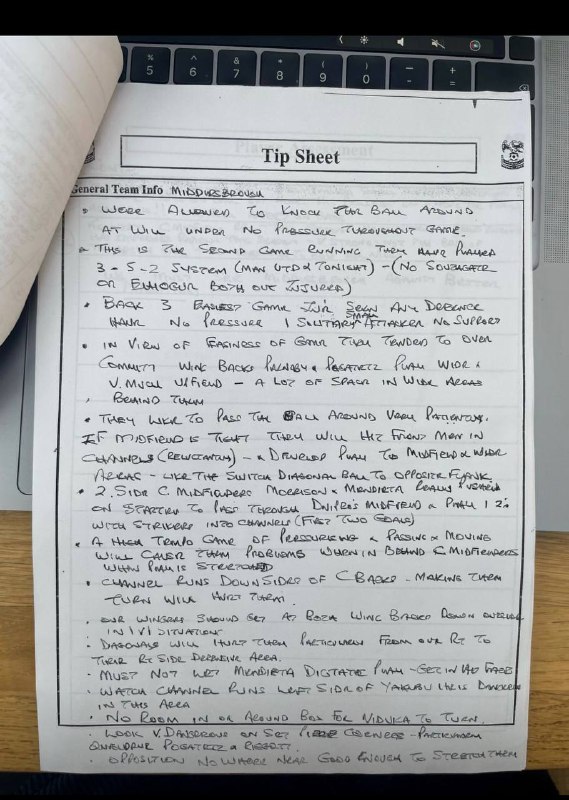 % 5
^ 6
& 7
* 8
( 9
) 0
Tip Sheet
General Team Info MIDDLESBROUGH
• WERE ALLOWED TO KNOCK THE BALL AROUND
AT WILL UNDER NO PRESSURE THROUGHOUT GAME.
• THIS IS THE SECOND GAME RUNNING THEY HAVE PLAYED
3-5-2 SYSTEM (MAN UTD & TONIGHT) - (NO SOUTHGATE
OR EHIOGUE BOTH OUT INJURED)
• BACK 3 EASIEST GAME I'VE SEEN ANY DEFENCE
HAVE NO PRESSURE 1 SOLITARY SMALL ATTACKER NO SUPPORT
• IN VIEW OF EASINESS OF GAME THEY TENDED TO OVER
COMMIT WING BACKS PARNABY & POGATETZ PLAY WIDE &
V. MUCH UPFIELD - A LOT OF SPACE IN WIDE AREAS
BEHIND THEM
• THEY LIKE TO PASS THE BALL AROUND VERY PATIENTLY.
IF MIDFIELD IS TIGHT THEY WILL HIT FRONT MEN IN
CHANNELS (RELUCTANTLY) - & DEVELOP PLAY TO MIDFIELD & WIDE
AREAS - LIKE THE SWITCH DIAGONAL BALL TO OPPOSITE FLANK.
• 2. SIDE C. MIDFIELDERS MORRISON & MENDIETA REALLY PUSHED
ON STARTED TO PASS THROUGH DNIPRO'S MIDFIELD & PLAY 1 2's
WITH STRIKERS INTO CHANNELS (FIRST TWO GOALS)
• A HIGH TEMPO GAME OF PRESSURISING & PASSING & MOVING
WILL CAUSE THEM PROBLEMS WHEN IN BEHIND C MIDFIELDERS
WHEN PLAY IS STRETCHED
• CHANNEL RUNS DOWN SIDES OF C BACKS - MAKING THEM
TURN WILL HURT THEM.
• OUR WINGERS SHOULD GET AT BOTH WING BACKS DOWN OUTSIDE
IN 1V1 SITUATIONS
• DIAGONALS WILL HURT THEM PARTICULARLY FROM OUR RT TO
THEIR RT SIDE DEFENSIVE AREA.
• MUST NOT LET MENDIETA DICTATE PLAY - GET IN HIS FACE
• WATCH CHANNEL RUNS LEFT SIDE OF YAKUBU HE IS DANGEROUS
IN THIS AREA
• NO ROOM IN OR AROUND BOX FOR VIDUKA TO TURN.
• LOOK V. DANGEROUS ON SET PIECE CORNERS - PARTICULARLY
QUEUDRUE POGATETZ & RIGGOTT.
• OPPOSITION NOWHERE NEAR GOOD ENOUGH TO STRETCH THEM